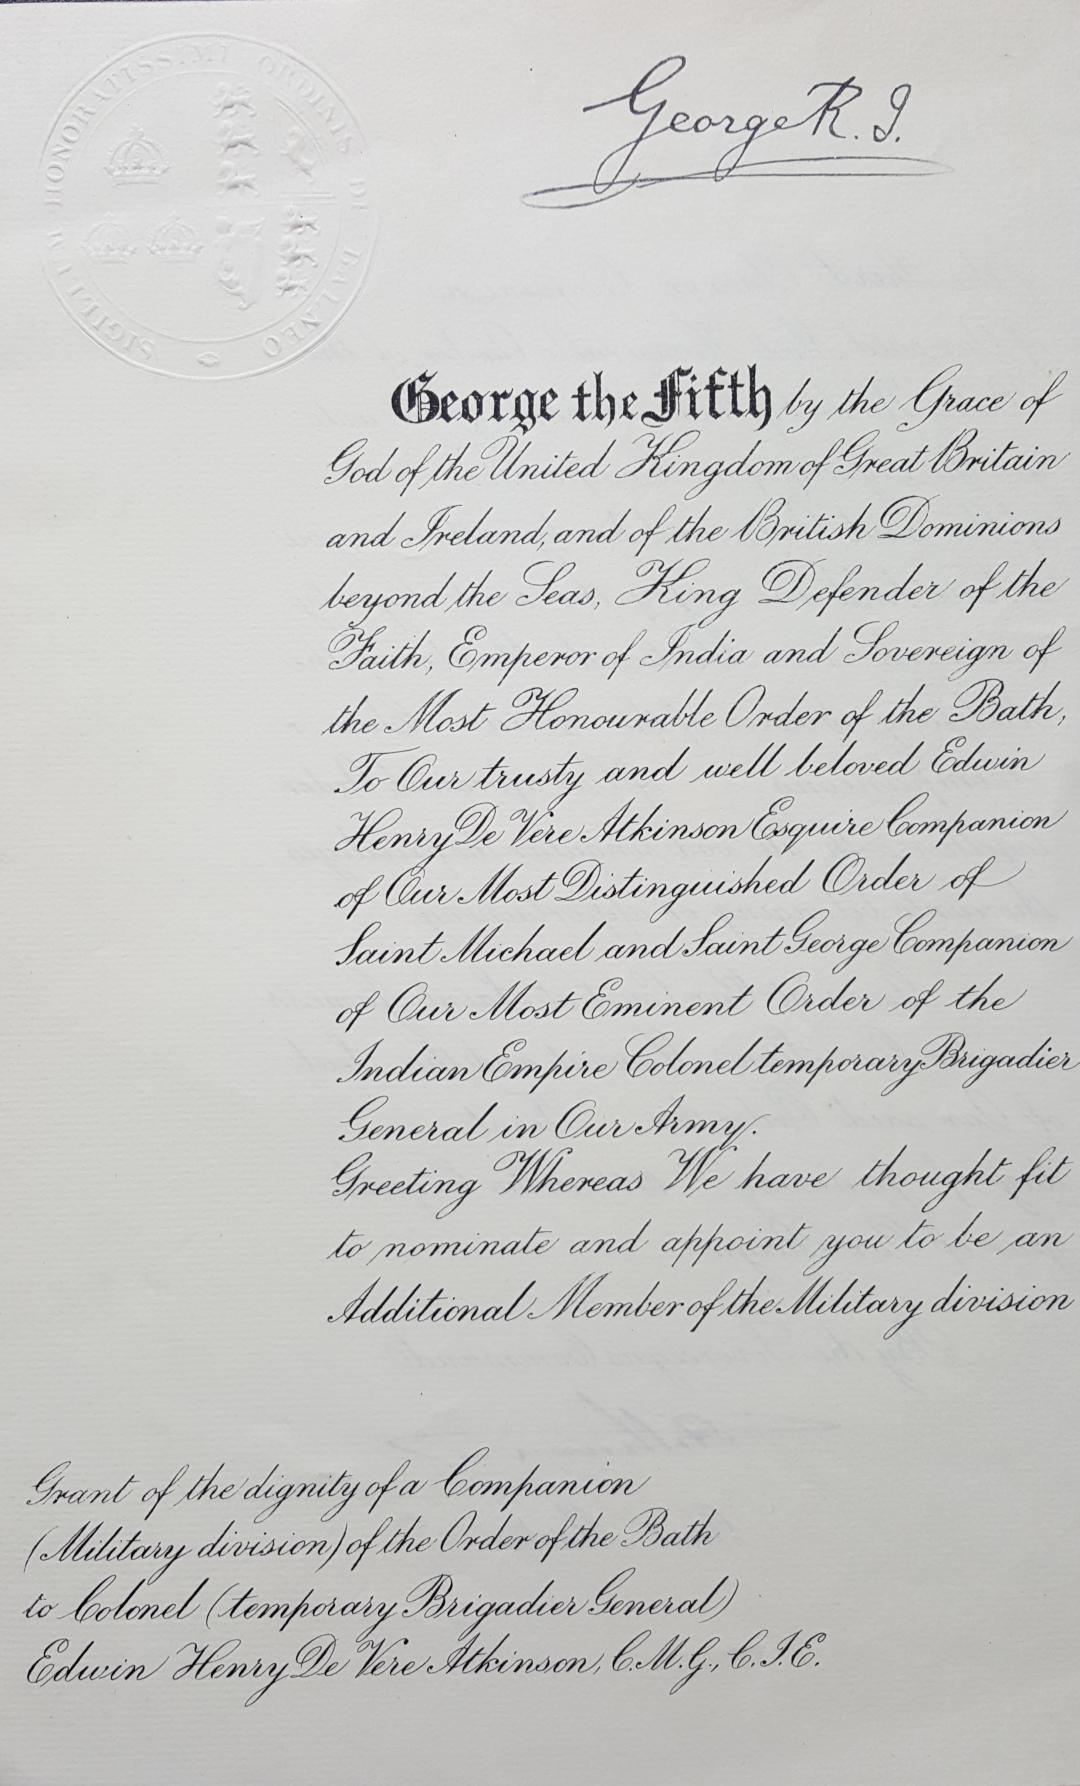 SIGILLUM HONORATISSIMI ORDINIS DE BALNEO
George R. I.
George the Fifth by the Grace of
God of the United Kingdom of Great Britain
and Ireland, and of the British Dominions
beyond the Seas, King Defender of the
Faith, Emperor of India and Sovereign of
the Most Honourable Order of the Bath,
To Our trusty and well beloved Edwin
Henry De Vere Atkinson Esquire Companion
of Our Most Distinguished Order of
Saint Michael and Saint George Companion
of Our Most Eminent Order of the
Indian Empire Colonel temporary Brigadier
General in Our Army.
Greeting Whereas We have thought fit
to nominate and appoint you to be an
Additional Member of the Military division
Grant of the dignity of a Companion
(Military division) of the Order of the Bath
to Colonel (temporary Brigadier General)
Edwin Henry De Vere Atkinson, C.M.G., C.I.E.